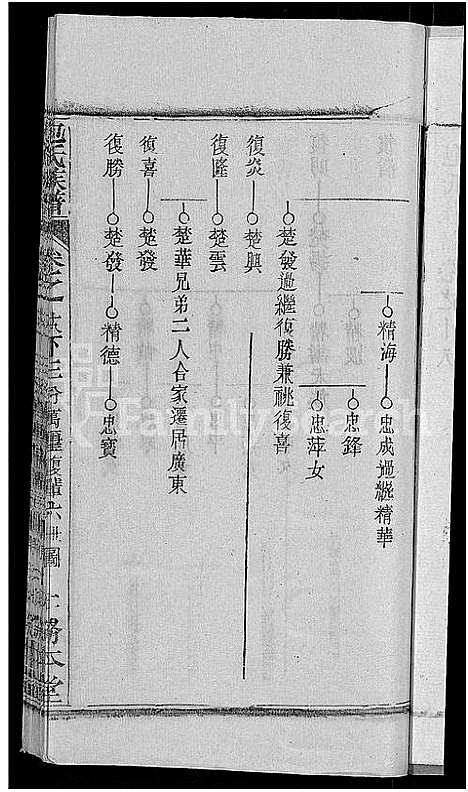 精海 忠成過繼精華
忠鋒
忠萍女
楚發過繼復勝兼祧復喜
復炎 楚興
復隆 楚雲
楚華兄弟二人合家遷居廣東
復喜 楚發
復勝 楚發 精德 忠寶
氏族譜 卷之
FamilySearch